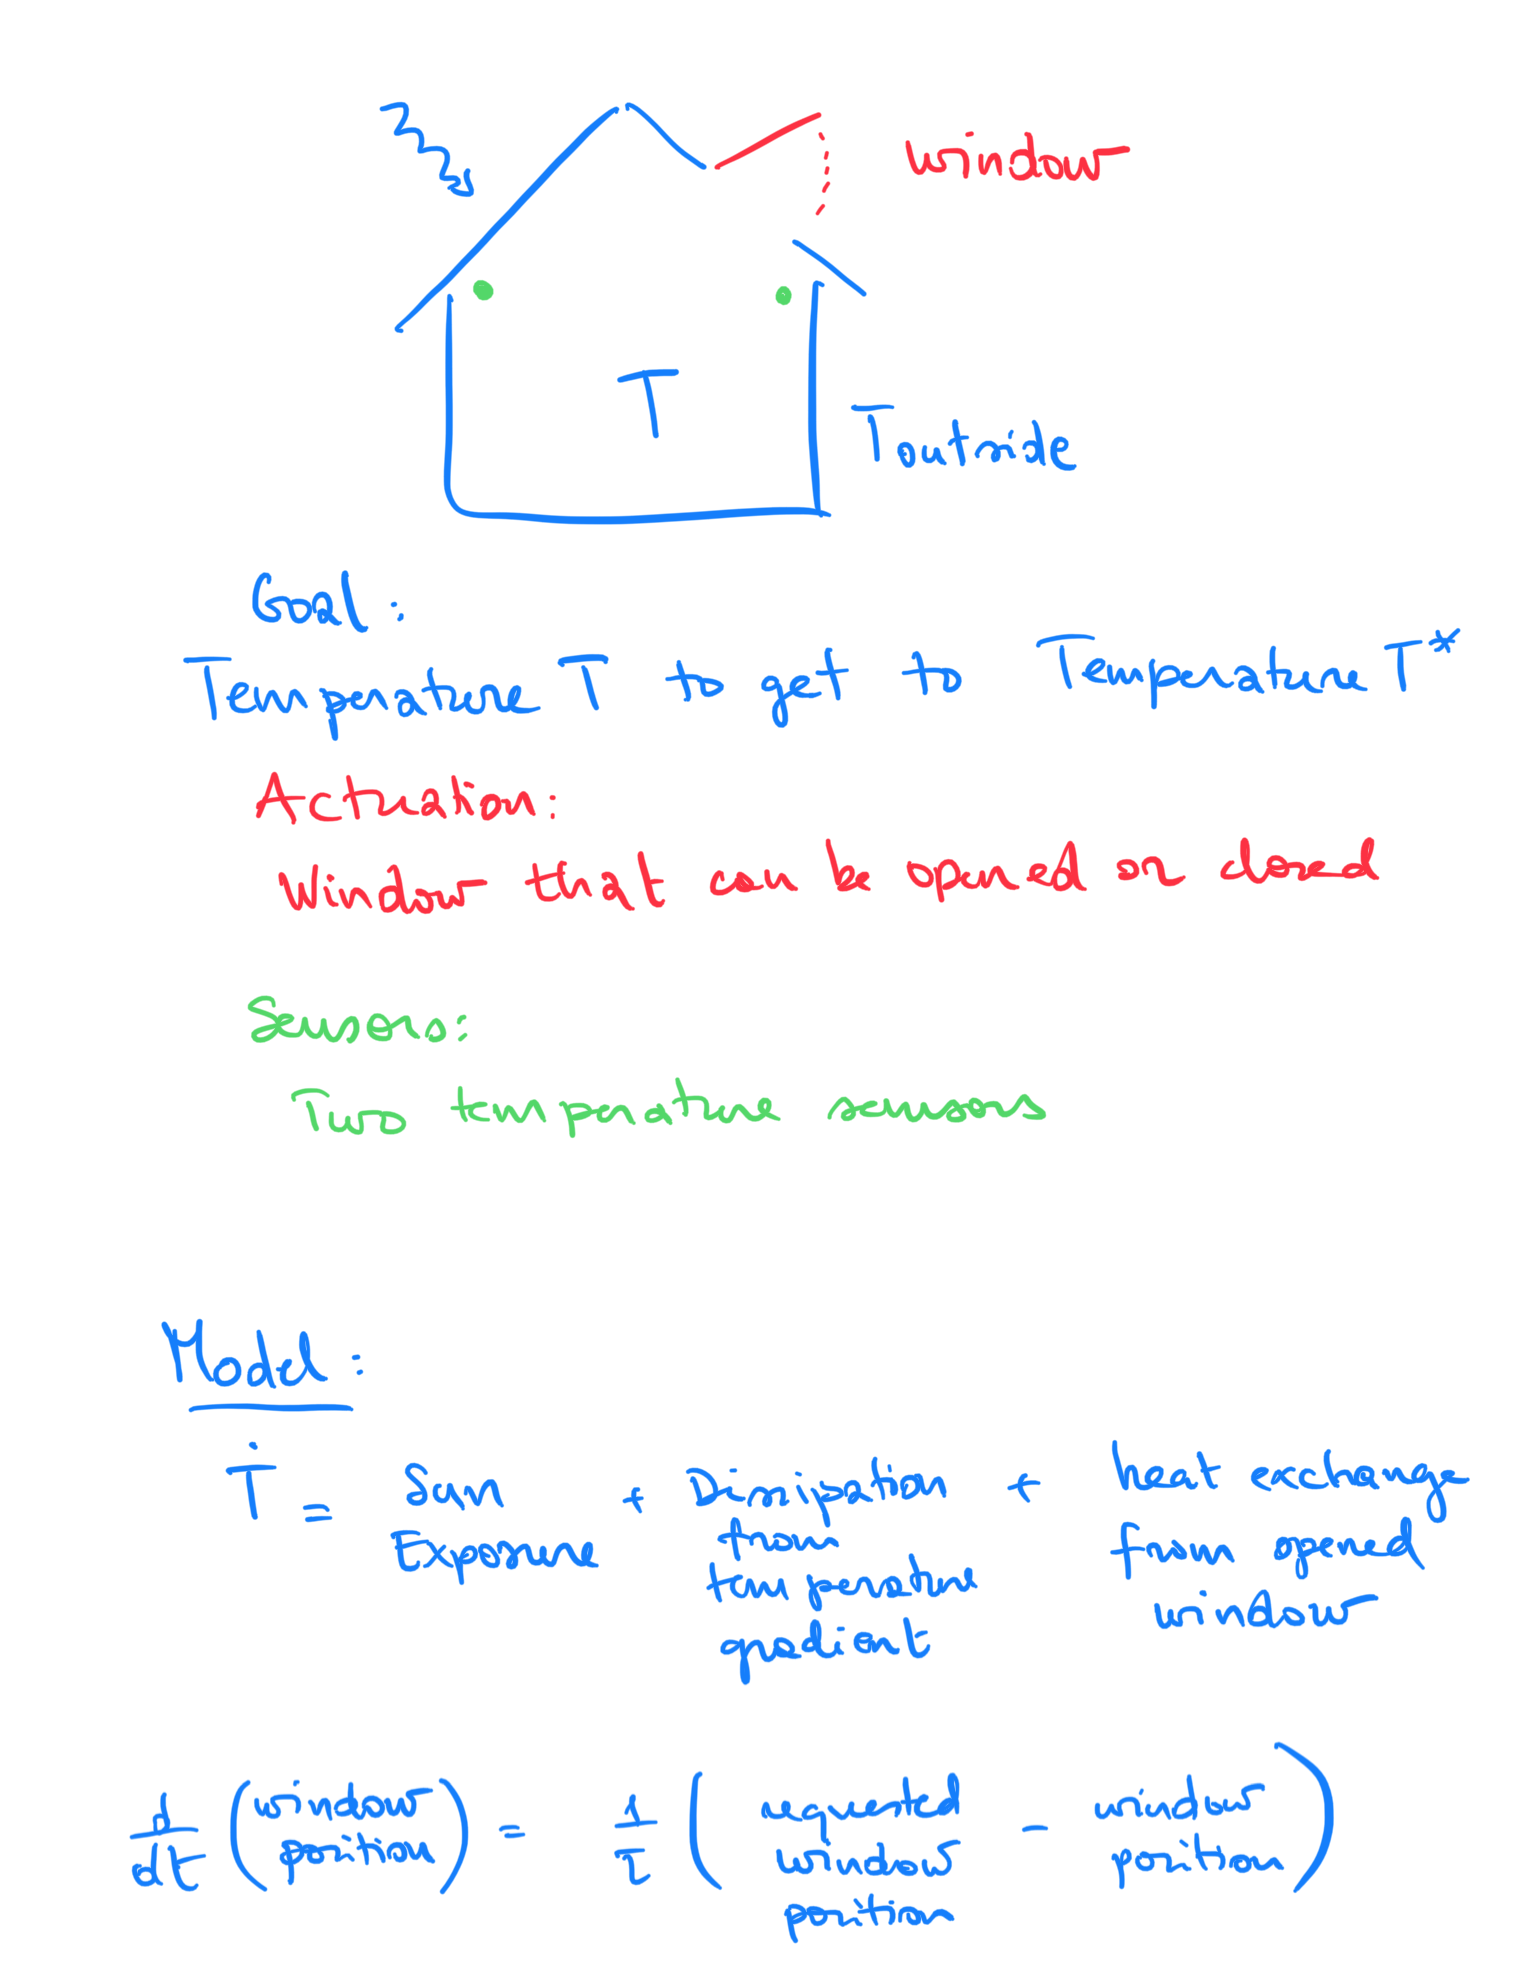 window
T
Toutside
Goal:
Temperature T to get to Temperature T*
Actuation:
Window that can be opened or closed
Sensors:
Two temperature sensors
Model:
Ṫ = Sun Exposure + Dissipation from temperature gradient + heat exchange from opened window
d/dt (window position) = 1/τ (requested window position - window position)